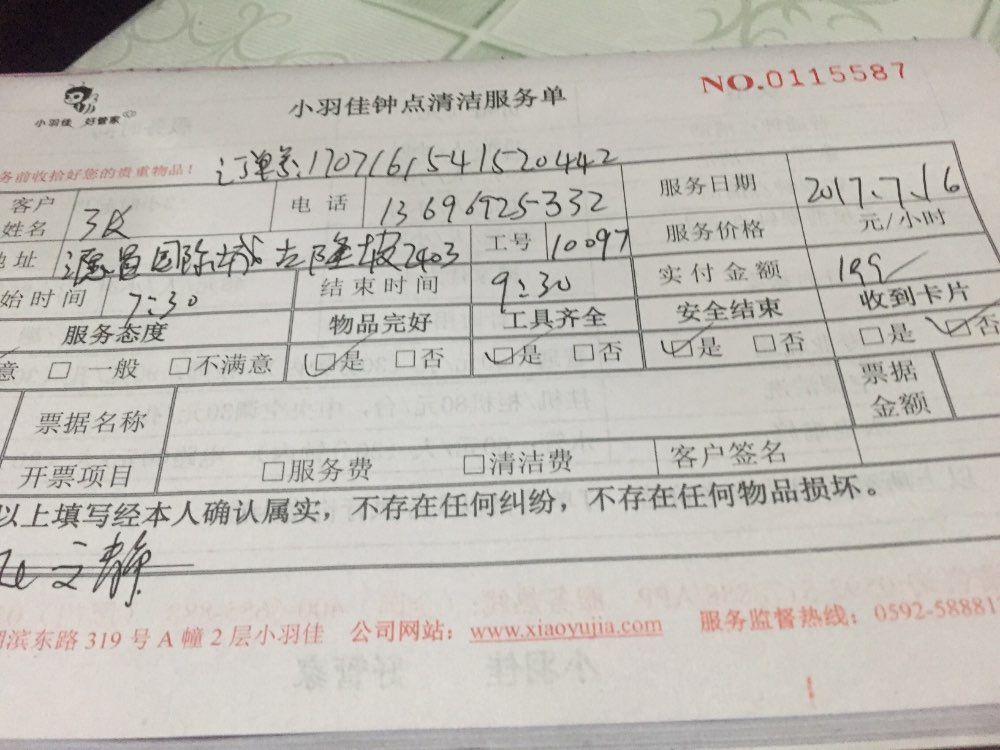 小羽佳 好管家
小羽佳钟点清洁服务单
NO.0115587
务前收拾好您的贵重物品!
订单号:1707161541520442
客户姓名
电话 13696925332
服务日期 2017.7.16
地址 国际城 2403
工号 10097
服务价格 元/小时
始时间 7:30
结束时间 9:30
实付金额 199
服务态度 物品完好 工具齐全 安全结束 收到卡片
意 □ 一般 □不满意 □是 □否 □是 □否 □是 □否 □是 □否
票据名称 票据金额
开票项目 □服务费 □清洁费 客户签名
以上填写经本人确认属实,不存在任何纠纷,不存在任何物品损坏。
滨东路 319 号 A 幢 2 层小羽佳 公司网站:www.xiaoyujia.com 服务监督热线:0592-58881